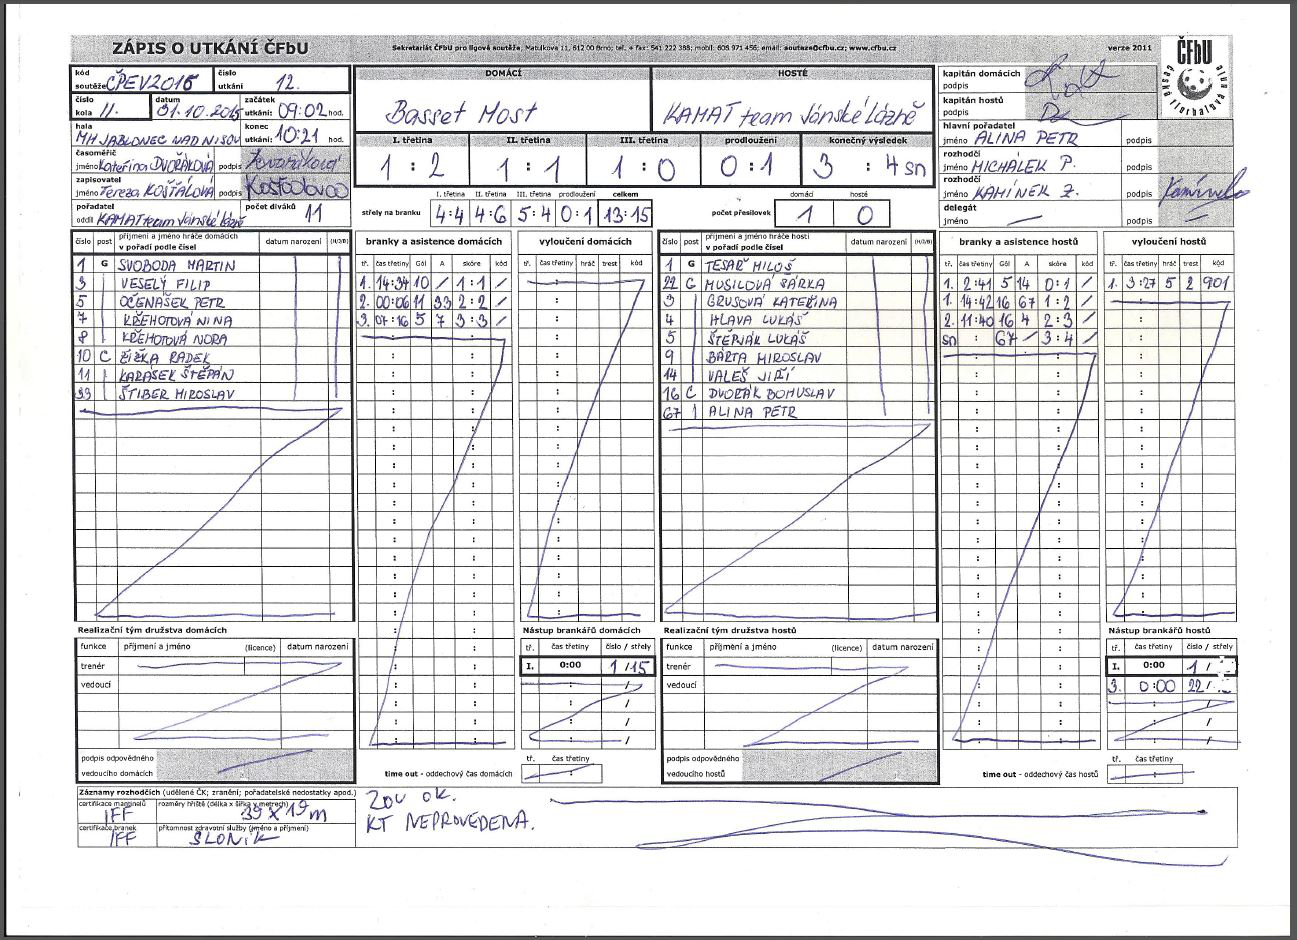 ZÁPIS O UTKÁNÍ ČFbU
Sekretariát ČFbU pro ligové soutěže, Matulkova 11, 612 00 Brno; tel. + fax: 541 222 388; mobil: 608 971 456; email: soutaze@cfbu.cz; www.cfbu.cz
verze 2011
ČFbU
kód soutěže ČPEV2015
číslo utkání 12.
číslo kola 11.
datum 31.10.2015
začátek utkání: 09:02 hod.
hala MH JABLONEC NAD NISOU
konec utkání: 10:21 hod.
časoměřič jméno Kateřina DVOŘÁKOVÁ podpis Dvořáková
zapisovatel jméno Tereza KOŠŤÁLOVÁ podpis
pořadatel oddíl KAMAT team Jánské Lázně
počet diváků 11
DOMÁCÍ
Basset Most
HOSTÉ
KAMAT team Jánské Lázně
I. třetina II. třetina III. třetina prodloužení konečný výsledek
1 : 2 1 : 1 1 : 0 0 : 1 3 : 4 sn
I. třetina II. třetina III. třetina prodloužení celkem
střely na branku 4:4 4:6 5:4 0:1 13:15
domácí hosté
počet přesilovek 1 0
kapitán domácích podpis
kapitán hostů podpis
hlavní pořadatel jméno ALINA PETR podpis
rozhodčí jméno MICHÁLEK P. podpis
rozhodčí jméno KAMÍNEK Z. podpis
delegát jméno — podpis
číslo post příjmení a jméno hráče domácích v pořadí podle čísel datum narození (H/J/B)
1 G SVOBODA MARTIN
3 VESELÝ FILIP
5 OČENAŠEK PETR
7 KŘEHOTOVÁ NINA
8 KŘEHOTOVÁ NORA
10 C ŽIŽKA RADEK
11 KARÁSEK ŠTĚPÁN
33 ŠTIBER MIROSLAV
branky a asistence domácích
tř. čas třetiny Gól A skóre kód
1. 14:34 10 / 1:1 /
2. 00:06 11 33 2:2 /
3. 07:16 5 7 3:3 /
vyloučení domácích
tř. čas třetiny hráč trest kód
číslo post příjmení a jméno hráče hostí v pořadí podle čísel datum narození (H/J/B)
1 G TESAŘ MILOŠ
22 G MUSILOVÁ ŠÁRKA
3 GRUSOVÁ KATEŘINA
4 HLAVA LUKÁŠ
5 ŠTĚPJÁK LUKÁŠ
9 BÁRTA MIROSLAV
14 VALEŠ JIŘÍ
16 C DVOŘÁK BOHUSLAV
67 ALINA PETR
branky a asistence hostů
tř. čas třetiny Gól A skóre kód
1. 2:41 5 14 0:1 /
1. 14:42 16 67 1:2 /
2. 11:40 16 4 2:3 /
sn : 67 / 3:4 /
vyloučení hostů
tř. čas třetiny hráč trest kód
1. 3:27 5 2 901
Realizační tým družstva domácích
funkce příjmení a jméno (licence) datum narození
trenér
vedoucí
podpis odpovědného vedoucího domácích
Nástup brankářů domácích
tř. čas třetiny číslo / střely
I. 0:00 1 / 15
tř. čas třetiny
time out - oddechový čas domácích
Realizační tým družstva hostů
funkce příjmení a jméno (licence) datum narození
trenér
vedoucí
podpis odpovědného vedoucího hostů
Nástup brankářů hostů
tř. čas třetiny číslo / střely
I. 0:00 1 /
3. 0:00 22 /
tř. čas třetiny
time out - oddechový čas hostů
Záznamy rozhodčích (udělené ČK; zranění; pořadatelské nedostatky apod.)
certifikace mantinelů IFF
rozměry hřiště (délka x šířka v metrech) 39 x 19 m
certifikace branek IFF
přítomnost zdravotní služby (jméno a příjmení) SLONÍK
ZOU OK.
KT NEPROVEDENA.